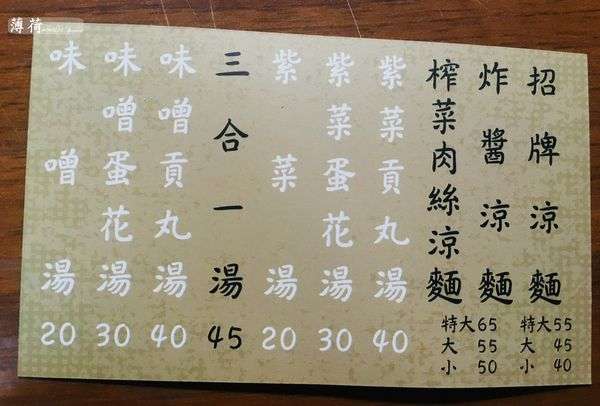 招牌涼麵
特大55
大 45
小 40
炸醬涼麵
榨菜肉絲涼麵
特大65
大 55
小 50
紫菜貢丸湯 40
紫菜蛋花湯 30
紫菜湯 20
三合一湯 45
味噌貢丸湯 40
味噌蛋花湯 30
味噌湯 20
薄荷